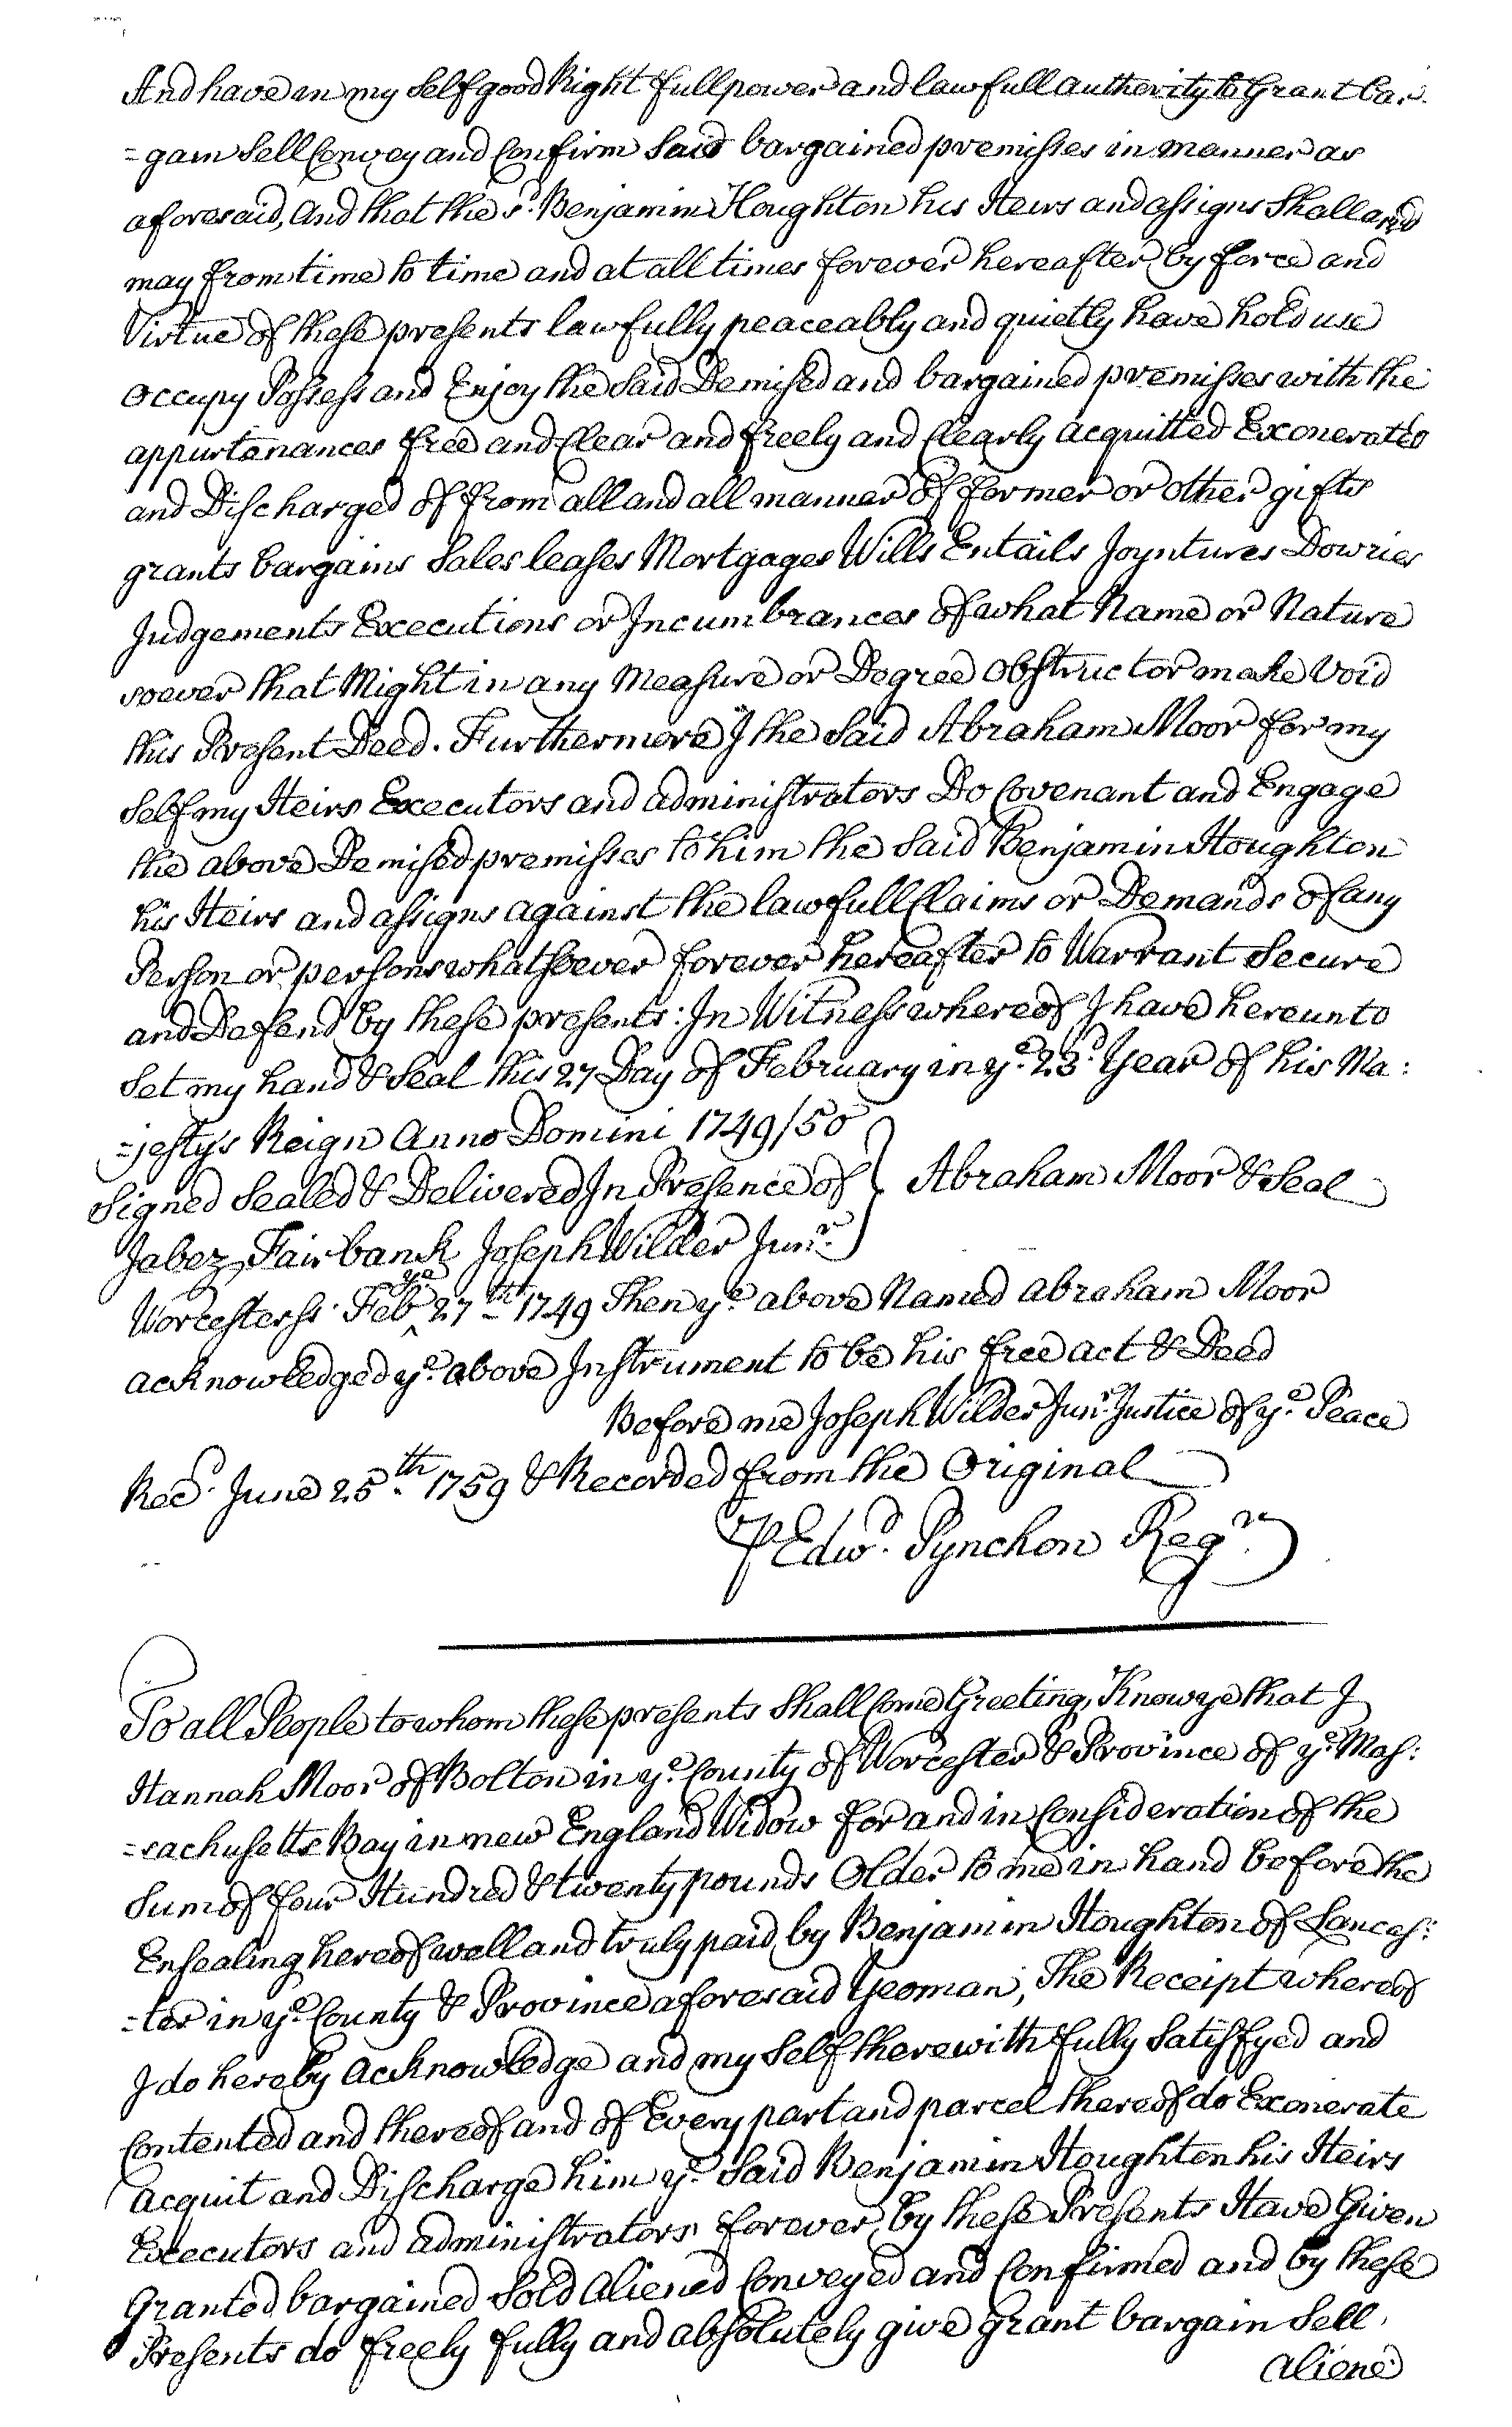 And have in my self good Right full power and lawfull authority to Grant bar
=gain sell Convey and Confirm said bargained premisses in manner as
aforesaid, And that the sd. Benjamin Houghton his Heirs and assigns shall and
may from time to time and at all times forever hereafter by force and
Virtue of these presents lawfully peaceably and quietly have hold use
occupy Possess and Enjoy the said Demised and bargained premisses with the
appurtenances free and Clear and freely and Clearly acquitted Exonerated
and Discharged of from all and all manner of former or other gifts
grants bargains sales leases Mortgages Wills Entails Joyntures Dowries
Judgements Executions or Incumbrances of what Name or Nature
soever that Might in any measure or Degree obstruct or make Void
this Present Deed. Furthermore I the said Abraham Moor for my
self my Heirs Executors and administrators Do Covenant and Engage
the above Demised premisses to him the said Benjamin Houghton
his Heirs and assigns against the lawfull Claims or Demands of any
Person or persons whatsoever forever hereafter to Warrant secure
and Defend by these presents: In Witness whereof I have hereunto
set my hand & seal this 27 Day of February in ye. 23d. Year of his Ma:
=jestys Reign Anno Domini 1749/50
Signed sealed & Delivered In Presence of } Abraham Moor & seal
Jabez Fairbank Joseph Wilder Junr.
Worcester ss. Feb ye 27th 1749 Then ye. above Named Abraham Moor
acknowledged ye. above Instrument to be his free act & Deed
Before me Joseph Wilder Junr. Justice of ye. Peace
Recd. June 25th. 1759 & Recorded from the Original
P Edwd. Pynchon Regr.
To all People to whom these presents shall Come Greeting, Know ye that I
Hannah Moor of Bolton in ye. County of Worcester & Province of ye. Mas:
=sachusetts Bay in new England Widow for and in Consideration of the
sum of four Hundred & twenty pounds Older to me in hand before the
Ensealing hereof well and truly paid by Benjamin Houghton of Lancas:
=ter in ye. County & Province aforesaid Yeoman, The Receipt whereof
I do hereby acknowledge and my self therewith fully satisfyed and
Contented and thereof and of Every part and parcel thereof do Exonerate
acquit and Discharge him ye. said Benjamin Houghton his Heirs
Executors and administrators forever by these Presents Have Given
Granted bargained sold aliened Conveyed and Confirmed and by these
Presents do freely fully and absolutely give grant bargain sell
aliene